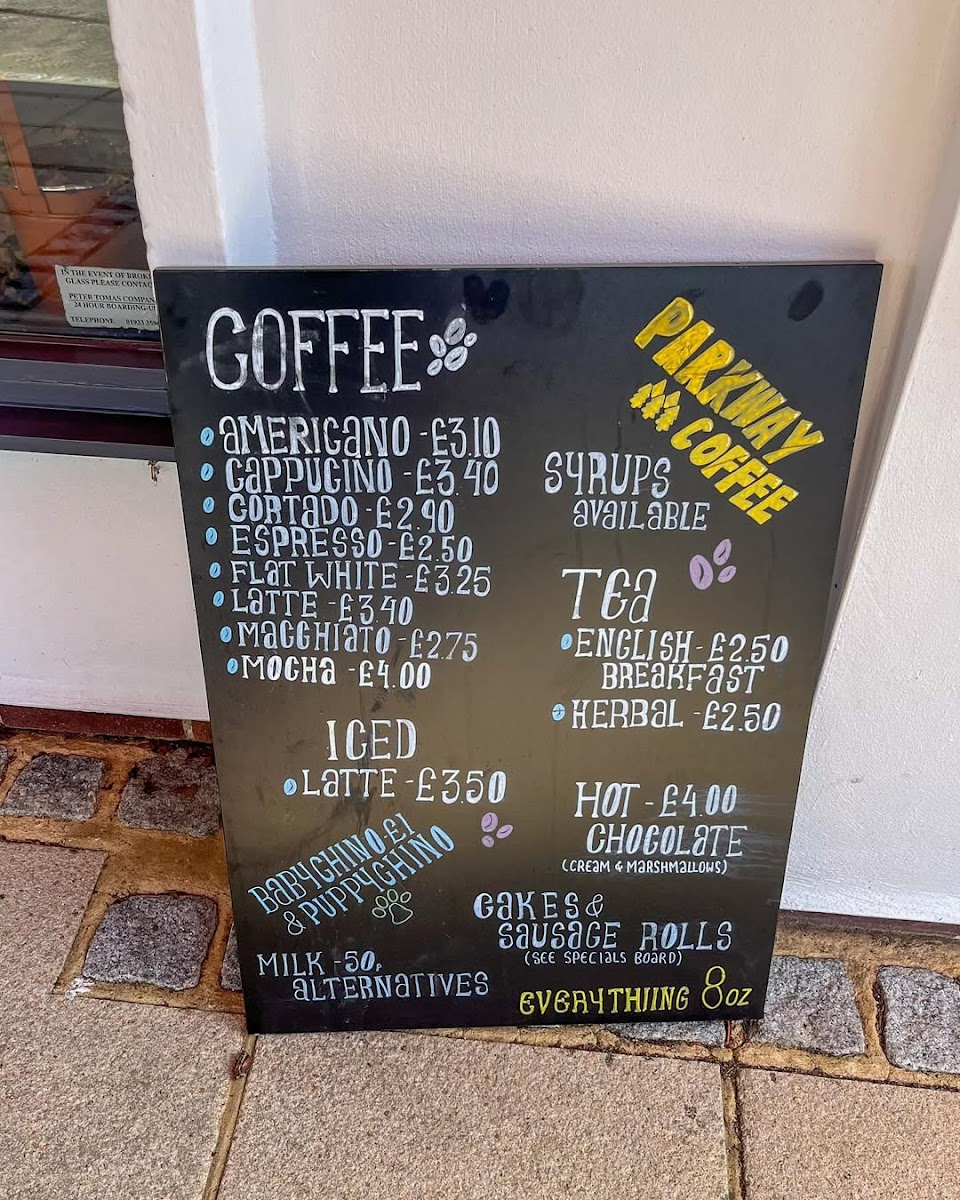 IN THE EVENT OF
GLASS PLEASE
PETER TOMAS
24 HOUR
TELEPHONE
COFFEE
AMERICANO - £3.10
CAPPUCINO - £3.40
CORTADO - £2.90
ESPRESSO - £2.50
FLAT WHITE - £3.25
LATTE - £3.40
MACCHIATO - £2.75
MOCHA - £4.00
ICED
LATTE - £3.50
BABYCHINO - £1
& PUPPYCHINO
MILK - 50p
ALTERNATIVES
PARKWAY
COFFEE
SYRUPS
AVAILABLE
TEA
ENGLISH - £2.50
BREAKFAST
HERBAL - £2.50
HOT - £4.00
CHOCOLATE
(CREAM & MARSHMALLOWS)
CAKES &
SAUSAGE ROLLS
(SEE SPECIALS BOARD)
EVERYTHIING 8oz